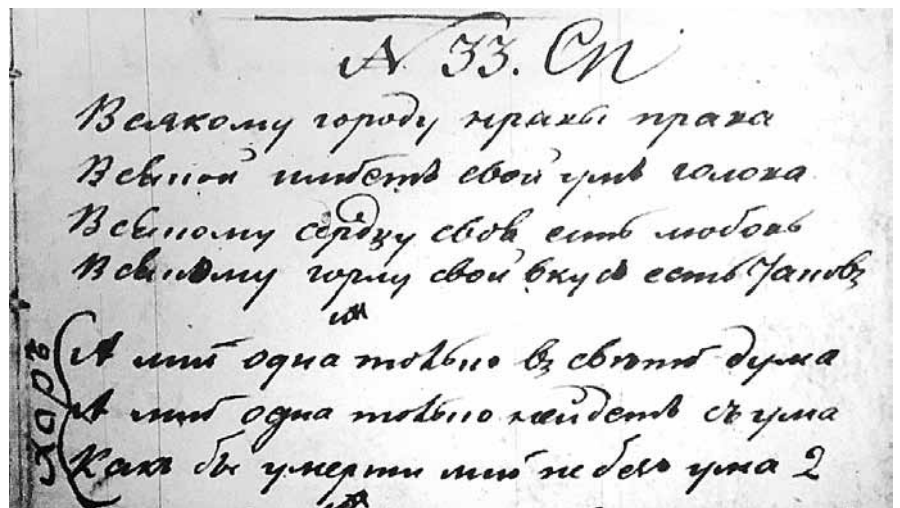 N 33. СП
Всякому городу нравы права
Всякой имѣетъ свой умъ голова
Всякому сердцу своя есть любовь
Всякому горлу свой вкусъ есть
А мнѣ одна только въ свѣтѣ дума
А мнѣ одна только нейдетъ съ ума
Какъ бы умерти мнѣ не безъ ума 2
хоръ